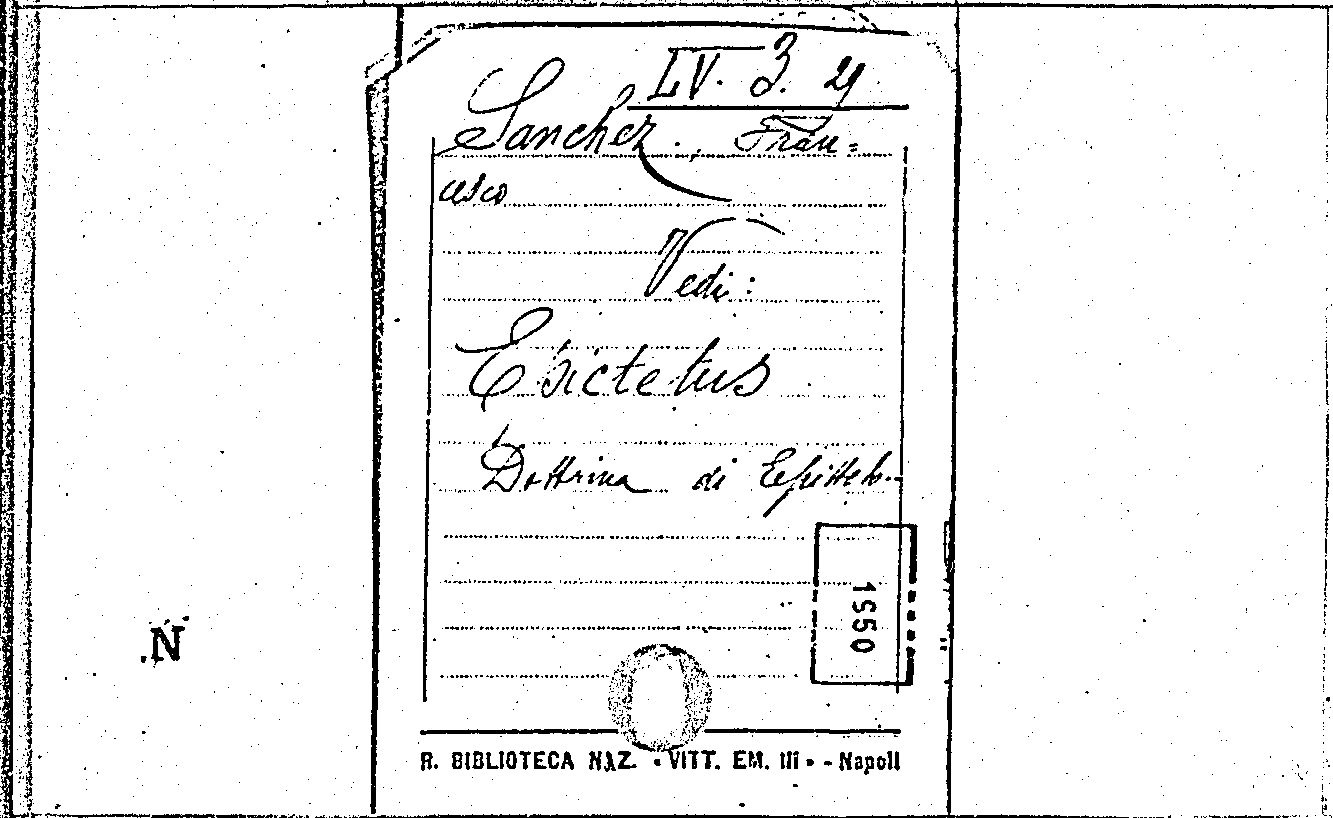 LV. 3. 21
Sanchez., Fran=
cesco
Vedi:
Epictetus
Dottrina di Epitteto..
1550
.N
R. BIBLIOTECA NAZ. • VITT. EM. III • - Napoli